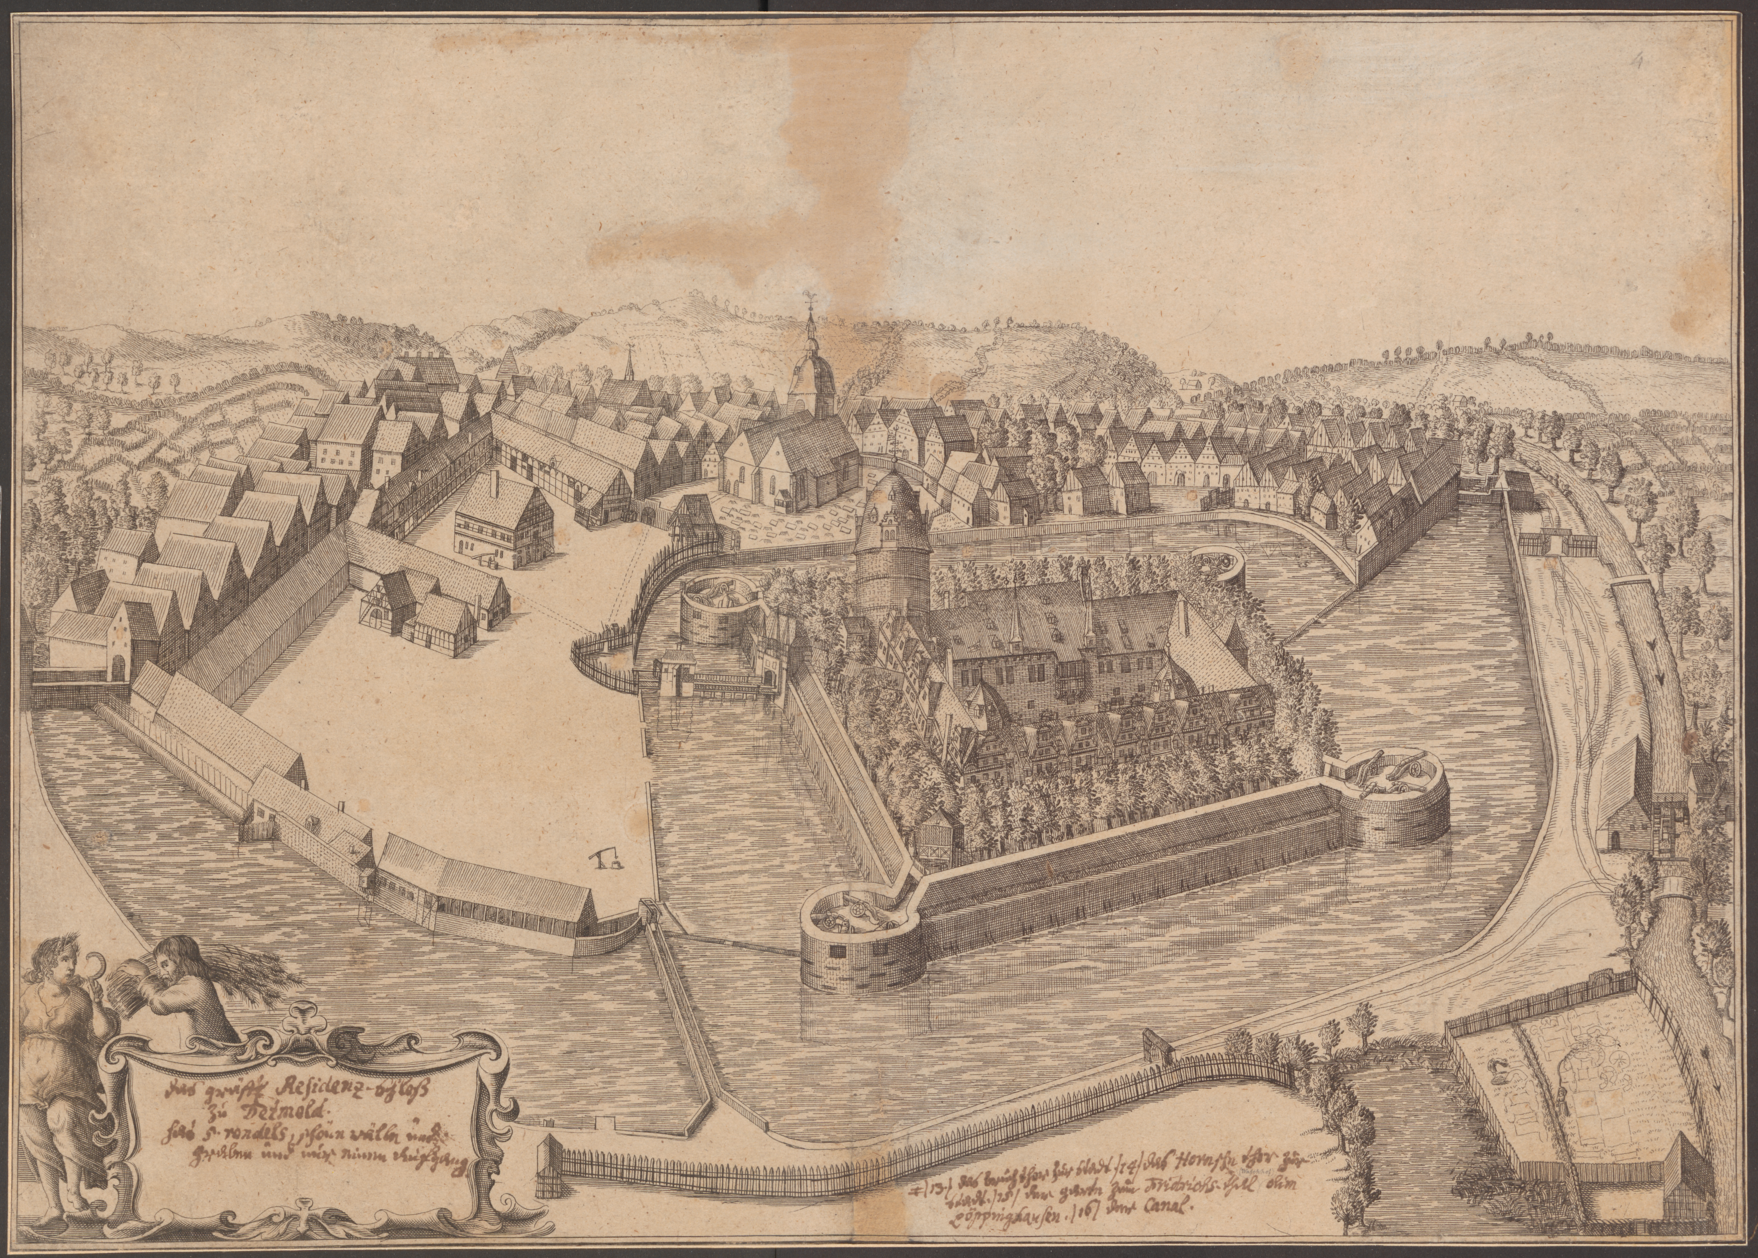 das gräfl. Residenz-schloß
zu Detmold.
hat 5 rondels, schöne wälle und
graben und nur einen Aufgang
13/ das bruch thor zur stadt /14/ das Hornsche thor zur
stadt /15/ der garte zum Fridrichs-thal olim
Pöppinghausen. /16/ der Canal.
4